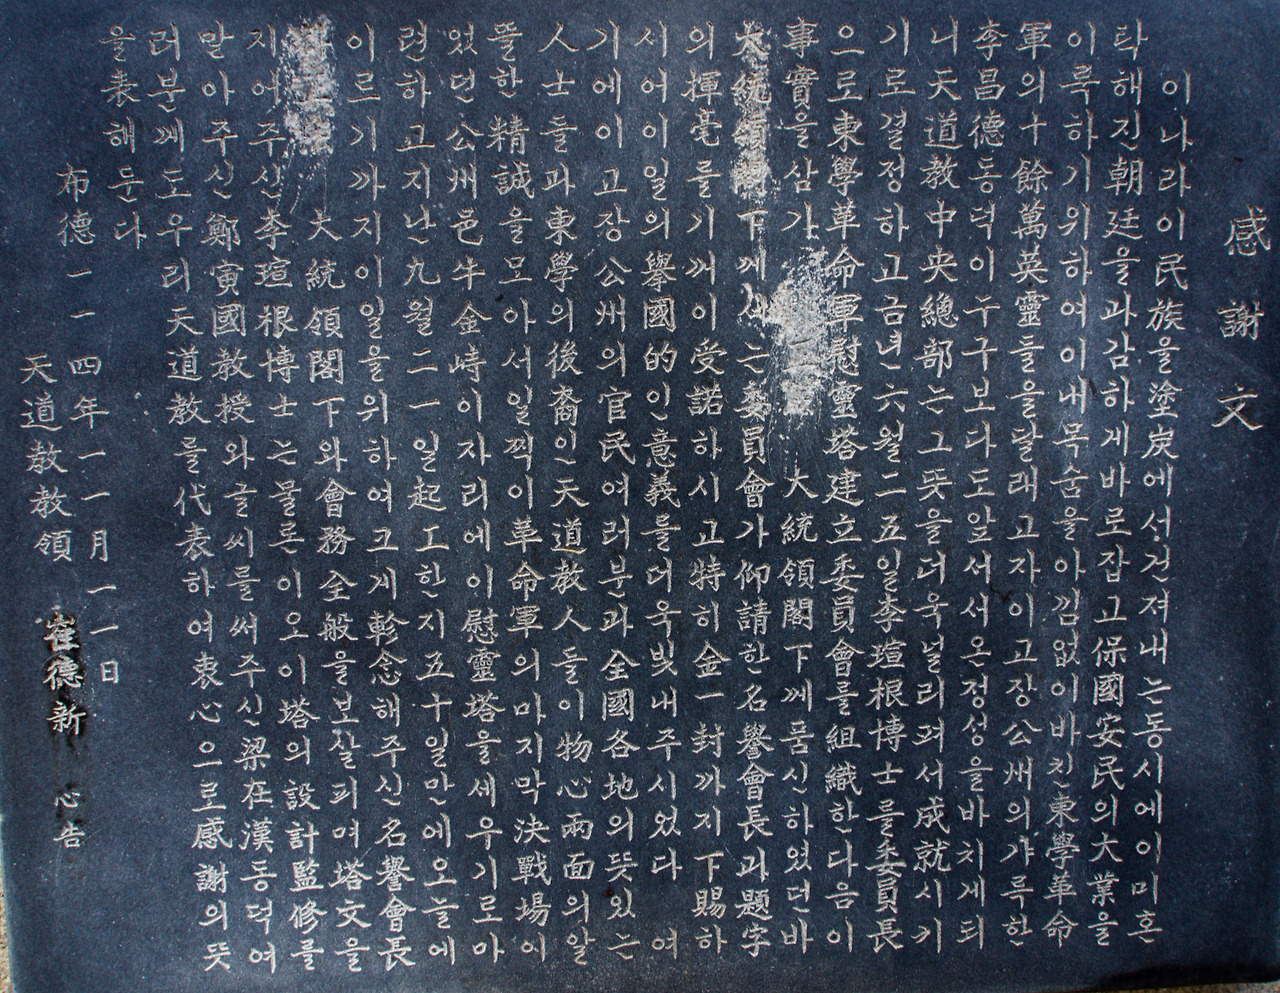 感謝文
이나라이民族을塗炭에서건져내는동시에이미혼
탁해진朝廷을과감하게바로잡고保國安民의大業을
이룩하기위하여이내목숨을아낌없이바친東學革命
軍의十餘萬英靈들을달래고자이고장公州의갸륵한
李昌德동덕이누구보다도앞서서온정성을바치게되
니天道敎中央總部는그뜻을더욱널리펴서成就시키
기로결정하고금년六월二五일李瑄根博士를委員長
으로東學革命軍慰靈塔建立委員會를組織한다음이
事實을삼가 大統領閣下께품신하였던바
大統領閣下께서는委員會가仰請한名譽會長과題字
의揮毫를기꺼이受諾하시고特히金一封까지下賜하
시어이일의擧國的인意義를더욱빛내주시었다 여
기에이고장公州의官民여러분과全國各地의뜻있는
人士들과東學의後裔인天道敎人들이物心兩面의알
뜰한精誠을모아서일찍이革命軍의마지막決戰場이
었던公州邑牛金峙이자리에이慰靈塔을세우기로마
련하고지난九월二一일起工한지五十일만에오늘에
이르기까지이일을위하여그게軫念해주신名譽會長
大統領閣下와會務全般을보살피며塔文을
지어주신李瑄根博士는물론이오이塔의設計監修를
맡아주신鄭寅國敎授와글씨를써주신梁在漢동덕여
러분께도우리天道敎를代表하여衷心으로感謝의뜻
을表해둔다
布德一一四年一一月一一日
天道敎敎領 崔德新 心告